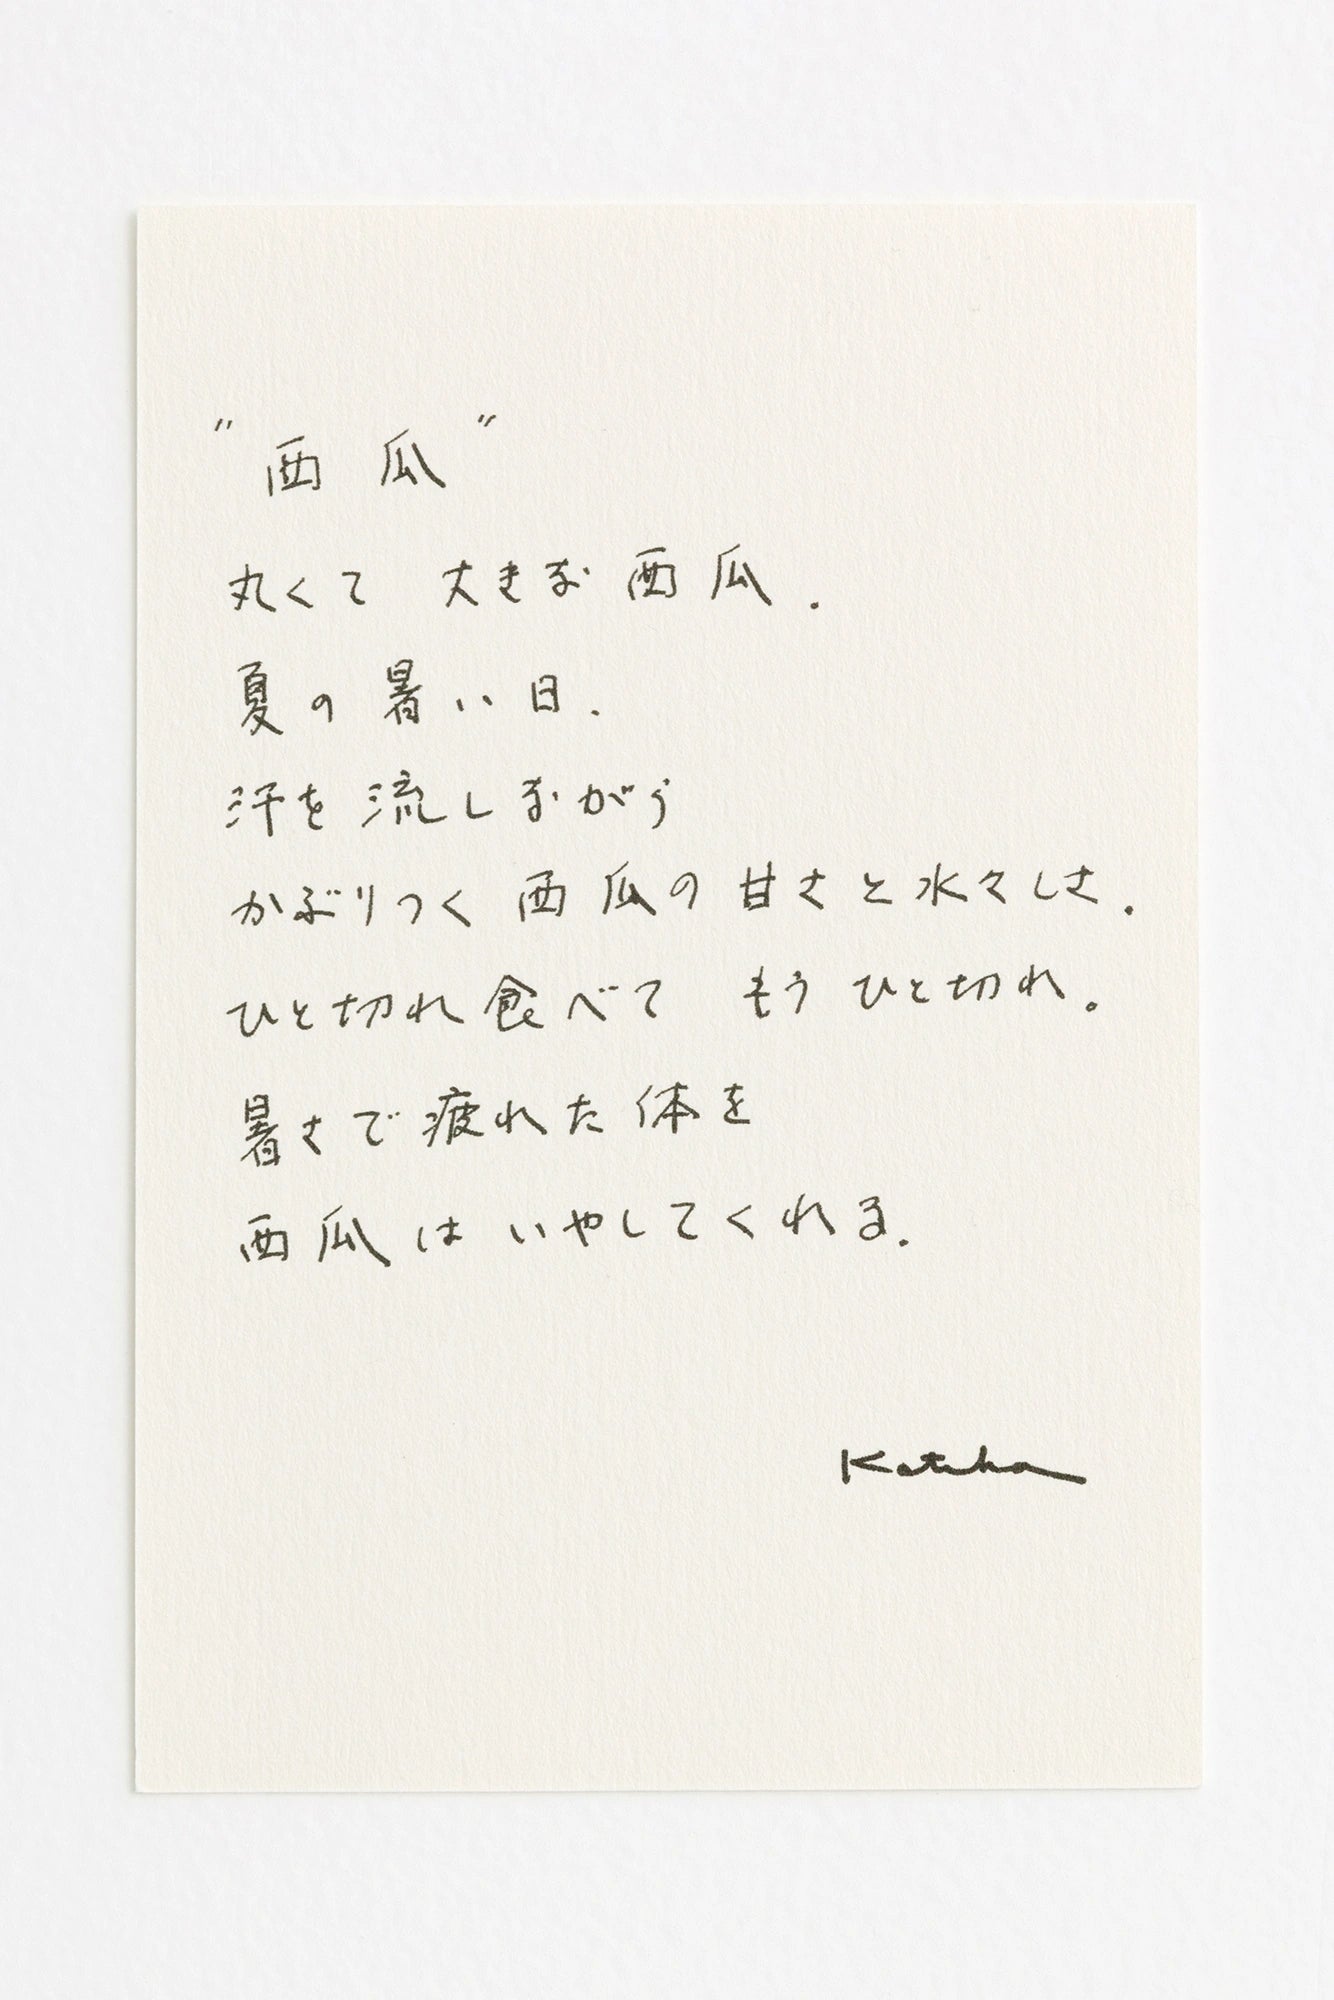 "西瓜"
丸くて 大きな西瓜.
夏の暑い日.
汗を流しながら
かぶりつく西瓜の甘さと水々しさ.
ひと切れ食べて もうひと切れ.
暑さで疲れた体を
西瓜はいやしてくれる.